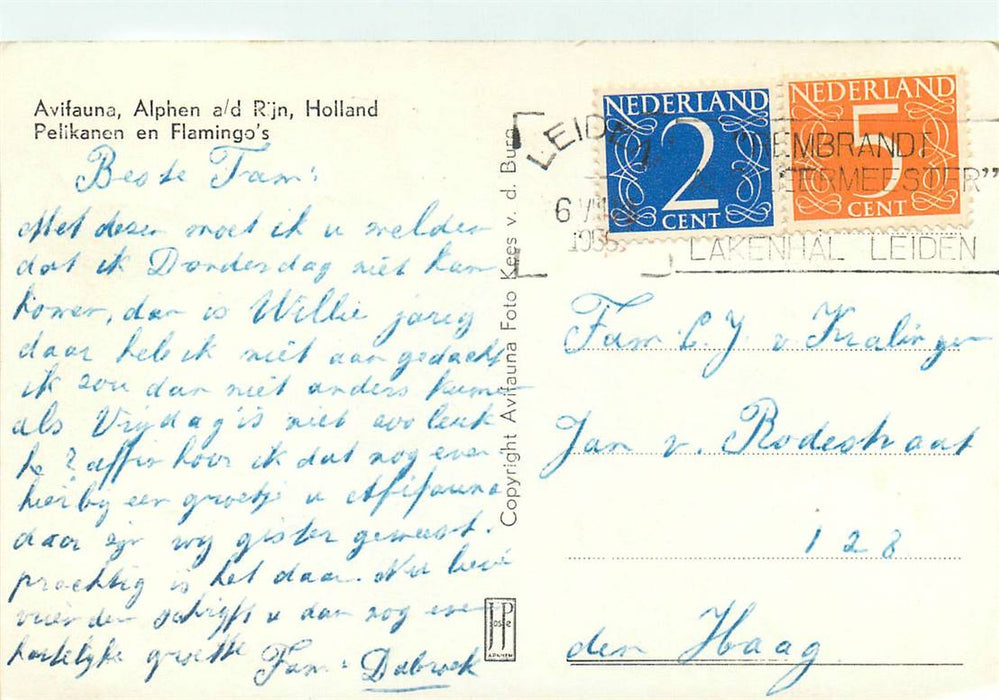 Avifauna, Alphen a/d Rijn, Holland
Pelikanen en Flamingo's
Beste Fam:
Met deze moet ik u melden
dat ik Donderdag niet kan
komen, dan is Willie jarig
daar heb ik niet aan gedacht
ik zou dan niet anders kunnen
als Vrijdag is niet zoo leuk
he? affin hoor ik dat nog even
hierbij een groetje u Afifauna
daar zijn wij gister geweest.
prachtig is het daar. Nu lieve
vrienden schrijft u dan nog even
hartelijke groette
Fam: Dubroek
Copyright Avifauna Foto Kees v. d. Burg
JosPé
ARNHEM
LEIDEN
6 VIII
1956
REMBRANDT
"LEERMEESTER"
LAKENHAL LEIDEN
NEDERLAND
2
CENT
NEDERLAND
5
CENT
Fam. C. J. v. Kralingen
Jan v. Rodestraat
128
den Haag